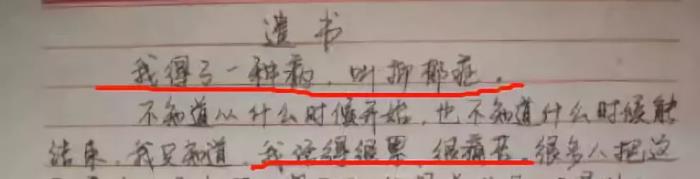 遗书
我得了一种病，叫抑郁症。
不知道从什么时候开始，也不知道什么时候能
结束，我只知道，我活得很累，很痛苦，很多人把这